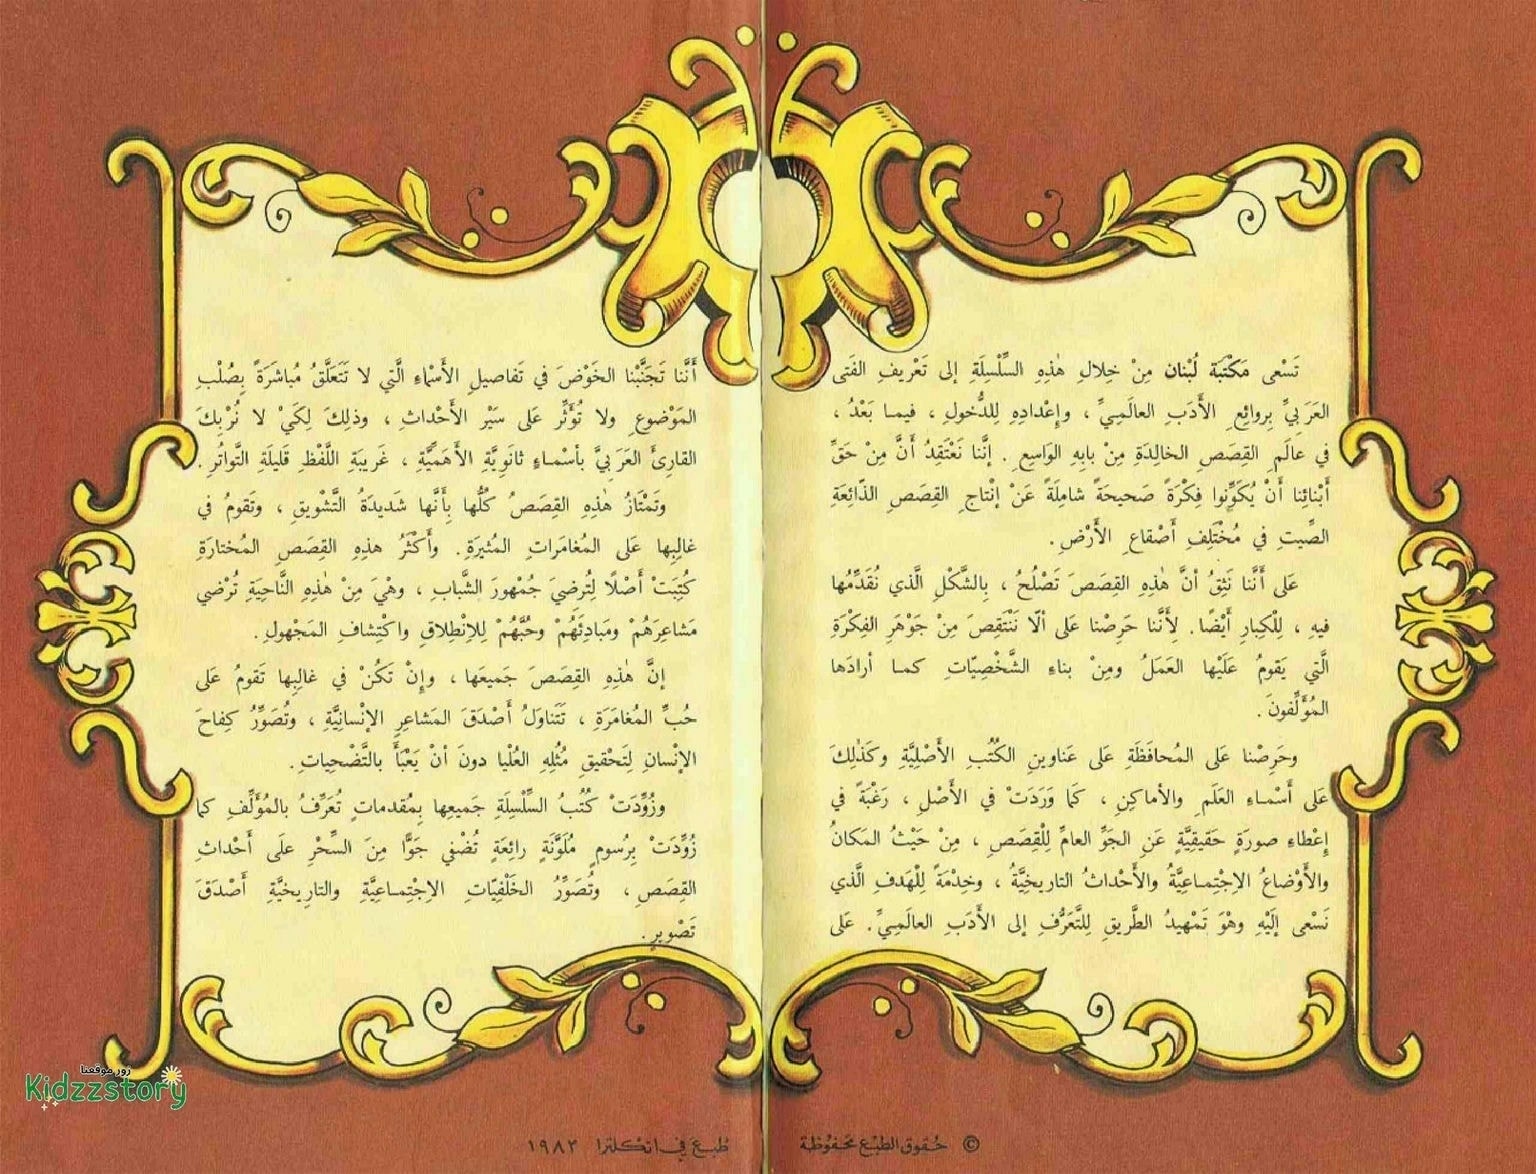 تَسْعى مَكْتَبَة لُبْنان مِنْ خِلالِ هٰذِهِ السِّلْسِلَةِ إلى تَعْريفِ الفَتى
العَرَبِيِّ بِروائِعِ الأَدَبِ العالَمِيِّ ، وإعْدادِهِ لِلدُّخولِ ، فيما بَعْدُ ،
في عالَمِ القِصَصِ الخالِدَةِ مِنْ بابِهِ الواسِعِ . إنَّنا نَعْتَقِدُ أَنَّ مِنْ حَقِّ
أَبْنائِنا أَنْ يُكَوِّنوا فِكْرَةً صَحيحَةً شامِلَةً عَنْ إنْتاجِ القِصَصِ الذّائِعَةِ
الصِّيتِ في مُخْتَلِفِ أَصْقاعِ الأَرْضِ .
عَلى أَنَّنا نَثِقُ أَنَّ هٰذِهِ القِصَصَ تَصْلُحُ ، بِالشَّكْلِ الَّذي نُقَدِّمُها
فيهِ ، لِلْكِبارِ أَيْضًا . لِأَنَّنا حَرِصْنا عَلى ألّا نَنْتَقِصَ مِنْ جَوْهَرِ الفِكْرَةِ
الَّتي يَقومُ عَلَيْها العَمَلُ ومِنْ بناءِ الشَّخْصِيّاتِ كما أرادَها
المُؤَلِّفونَ .
وحَرِصْنا عَلى المُحافَظَةِ عَلى عَناوينِ الكُتُبِ الأَصْلِيَّةِ وكَذٰلِكَ
عَلى أَسْماءِ العَلَمِ والأماكِنِ ، كَما وَرَدَتْ في الأَصْلِ ، رَغْبَةً في
إعْطاءِ صورَةٍ حَقيقِيَّةٍ عَنِ الجَوِّ العامِّ لِلْقِصَصِ ، مِنْ حَيْثُ المَكانُ
والأَوْضاعُ الاِجْتِماعِيَّةُ والأَحْداثُ التاريخِيَّةُ ، وخِدْمَةً لِلْهَدَفِ الَّذي
نَسْعى إلَيْهِ وهْوَ تَمْهيدُ الطَّريقِ لِلتَّعَرُّفِ إلى الأَدَبِ العالَمِيِّ . عَلى
© حُقوق الطَّبْع مَحْفوظَة
أَنَّنا تَجَنَّبْنا الخَوْضَ في تَفاصيلِ الأَسْماءِ الَّتي لا تَتَعَلَّقُ مُباشَرَةً بِصُلْبِ
المَوْضوعِ ولا تُؤَثِّر عَلى سَيْرِ الأَحْداثِ ، وذٰلِكَ لِكَيْ لا نُرْبِكَ
القارِئَ العَرَبِيَّ بأسْماءٍ ثانَوِيَّةِ الأَهَمِّيَّةِ ، غَريبَةِ اللَّفْظِ قَليلَةِ التَّواتُرِ .
وتَمْتازُ هٰذِهِ القِصَصُ كُلُّها بِأَنَّها شَديدَةُ التَّشْويقِ ، وتَقومُ في
غالِبِها عَلى المُغامَراتِ المُثيرَةِ . وأَكْثَرُ هٰذِهِ القِصَصِ المُختارَةِ
كُتِبَتْ أَصْلًا لِتُرضِيَ جُمْهورَ الشَّبابِ ، وهْيَ مِنْ هٰذِهِ النَّاحِيَةِ تُرْضي
مَشاعِرَهُمْ ومَبادِئَهُمْ وحُبَّهُمْ لِلاِنْطِلاقِ واكْتِشافِ المَجْهولِ .
إنَّ هٰذِهِ القِصَصَ جَميعَها ، وإنْ تَكُنْ في غالِبِها تَقومُ عَلى
حُبِّ المُغامَرَةِ ، تَتَناوَلُ أَصْدَقَ المَشاعِرِ الإنْسانِيَّةِ ، وتُصَوِّرُ كِفاحَ
الإنْسانِ لِتَحْقيقِ مُثُلِهِ العُلْيا دونَ أَنْ يَعْبَأَ بالتَّضْحِياتِ .
وزُوِّدَتْ كُتُبُ السِّلْسِلَةِ جَميعِها بِمُقدماتٍ تُعَرِّفُ بالمُؤَلِّفِ كما
زُوِّدَتْ بِرُسومٍ مُلَوَّنَةٍ رائِعَةٍ تُضْفي جَوًّا مِنَ السِّحْرِ عَلى أَحْداثِ
القِصَصِ ، وتُصَوِّرُ الخَلْفِيّاتِ الاِجْتِماعِيَّةِ والتاريخيَّةِ أَصْدَقَ
تَصْويرٍ .
طُبِعَ في انكلترا ١٩٨٢
زور موقعنا
Kidzzstory